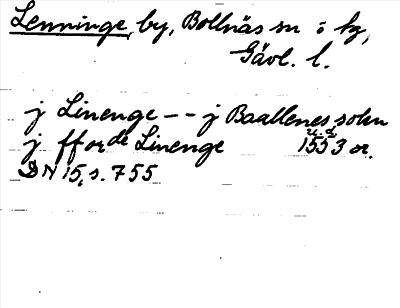 Lenninge, by, Bollnäs sn o kg,
Gävl. l.
j Linenge -- j Baallenes sokn
u. d.
j fforde Linenge 1553 or.
DN 15, s. 755